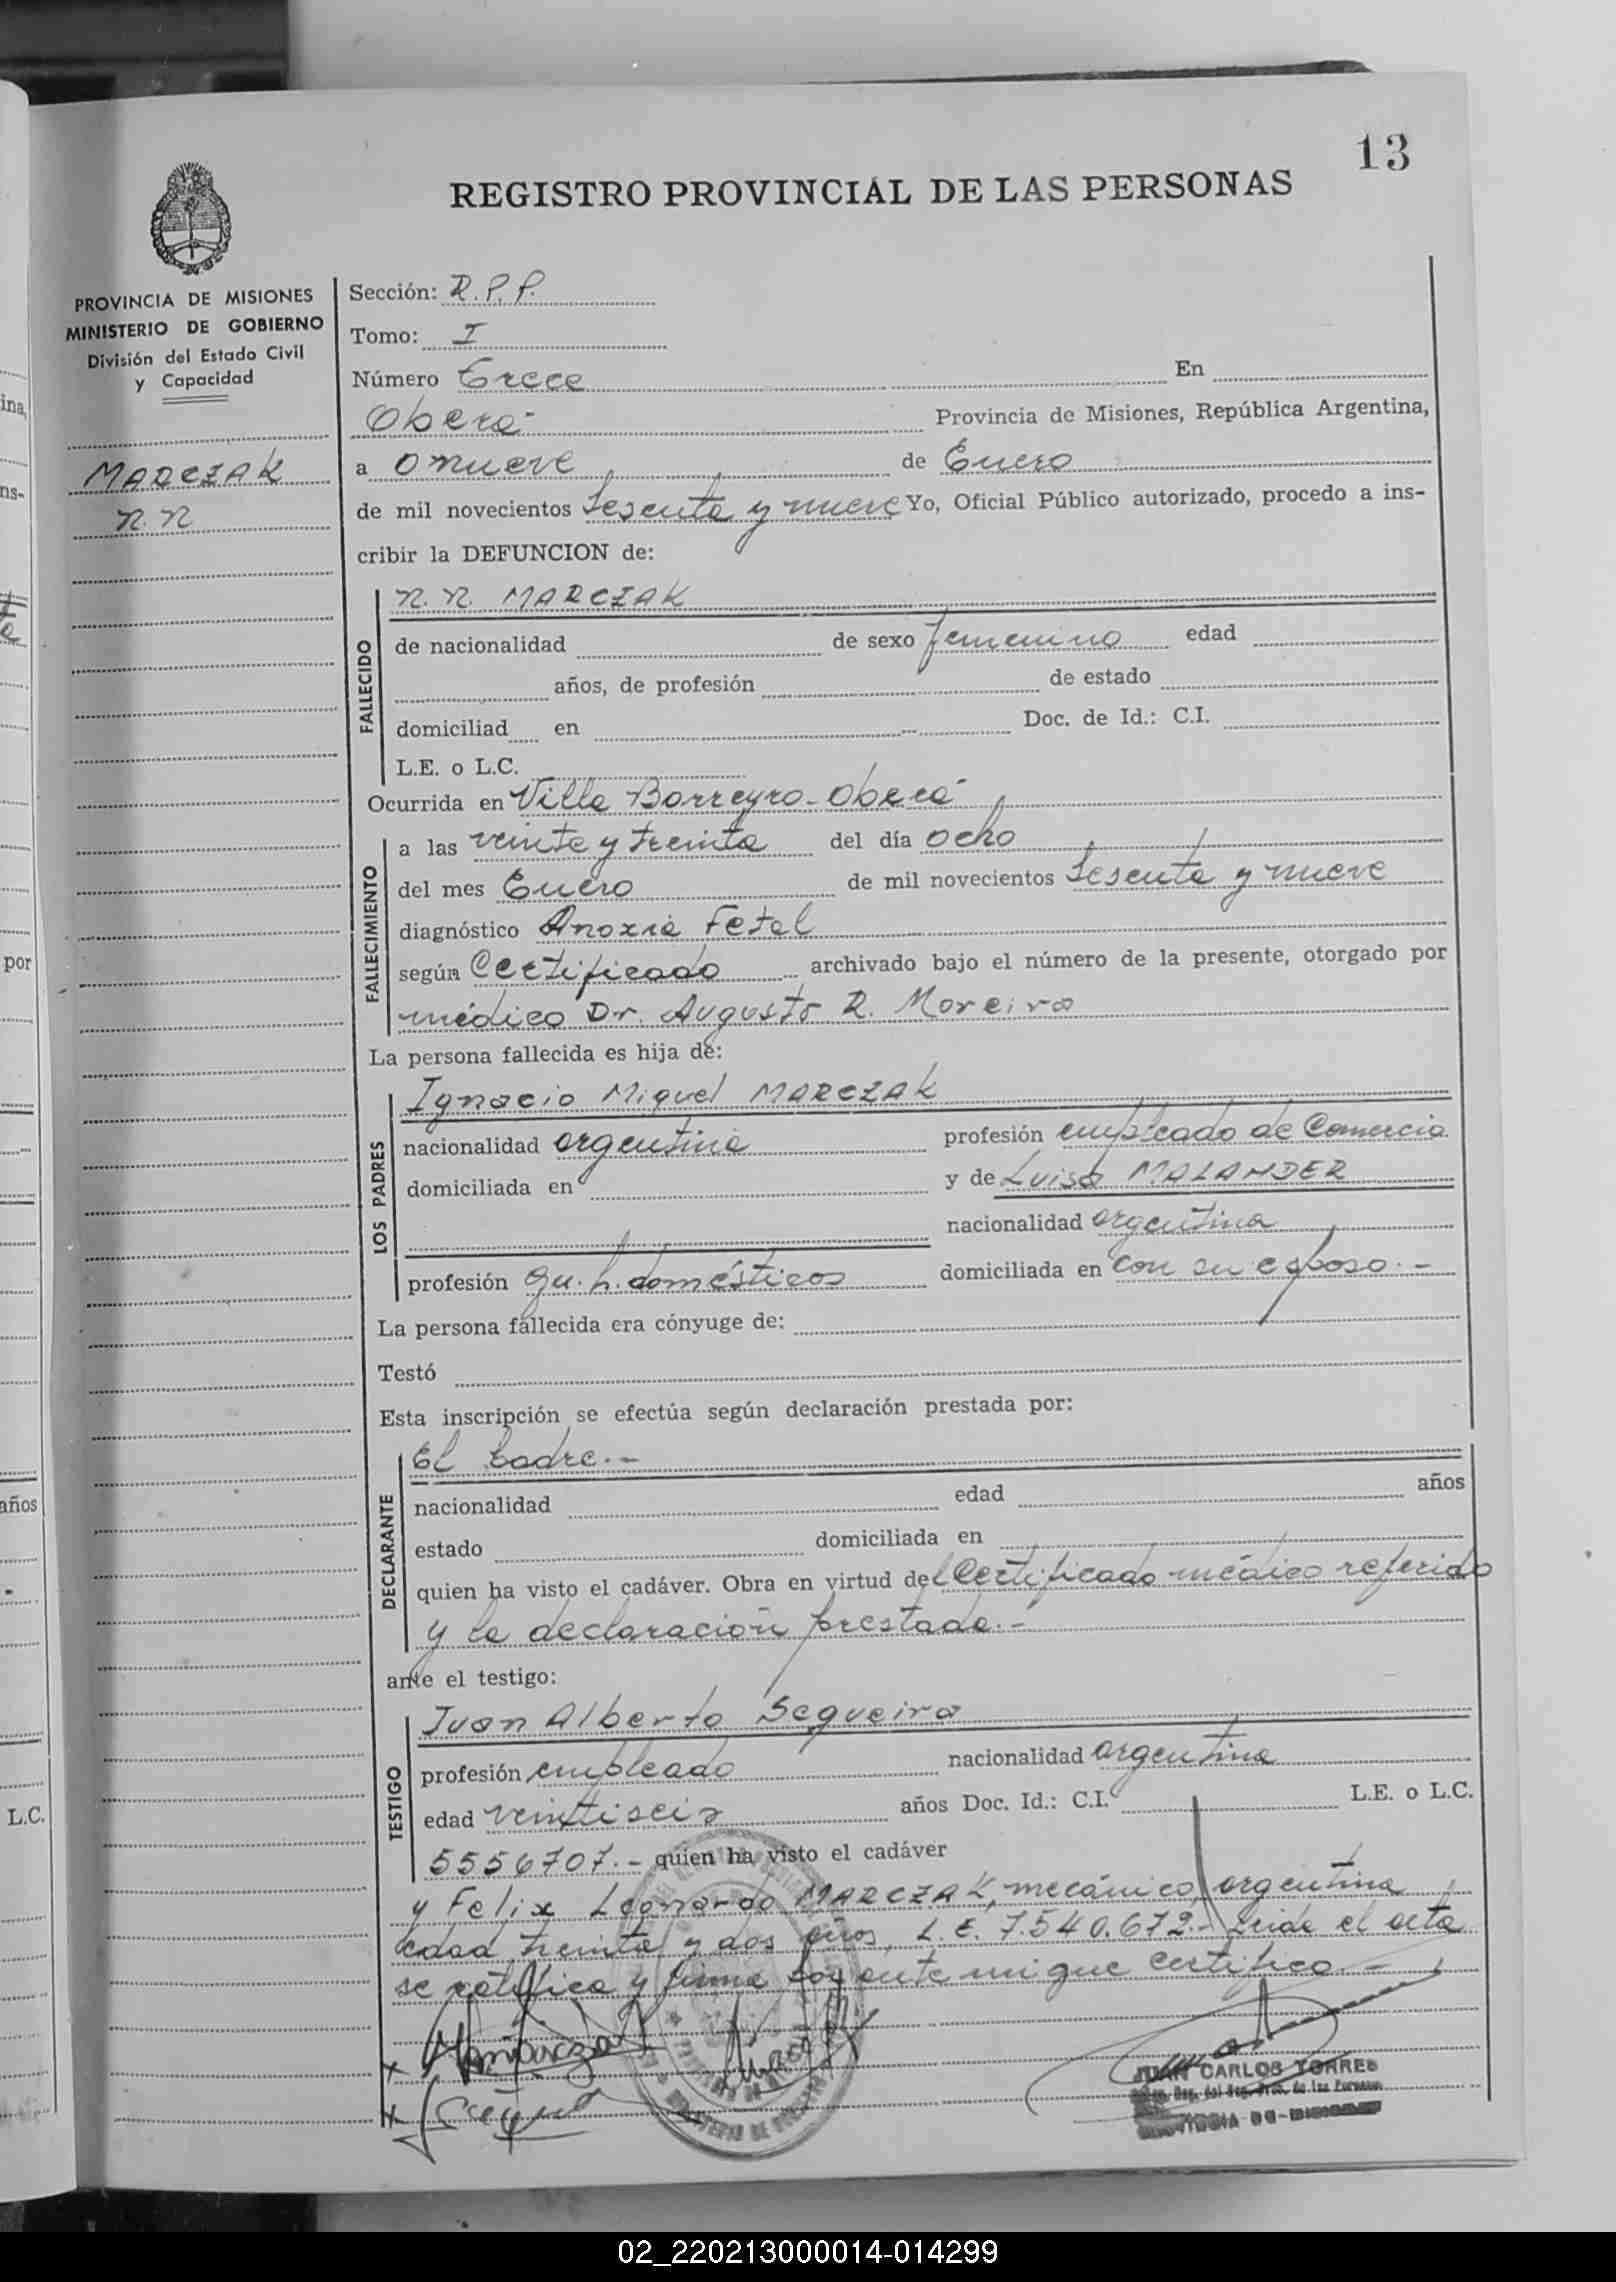 13
REGISTRO PROVINCIAL DE LAS PERSONAS
PROVINCIA DE MISIONES
MINISTERIO DE GOBIERNO
División del Estado Civil
y Capacidad
MARCZAK
N.N
Sección: R.P.P.
Tomo: I
Número Trece En
Oberá- Provincia de Misiones, República Argentina,
a nueve de Enero
de mil novecientos Sesenta y nueve Yo, Oficial Público autorizado, procedo a ins-
cribir la DEFUNCION de:
FALLECIDO
N.N. MARCZAK
de nacionalidad de sexo femenino edad
años, de profesión de estado
domiciliad en Doc. de Id.: C.I.
L.E. o L.C.
Ocurrida en Villa Barreyro-Oberá
FALLECIMIENTO
a las veinte y treinta del día ocho
del mes Enero de mil novecientos Sesenta y nueve
diagnóstico Anoxia Fetal
según Certificado archivado bajo el número de la presente, otorgado por
médico Dr. Augusto R. Moreira
La persona fallecida es hija de:
LOS PADRES
Ignacio Miguel MARCZAK
nacionalidad argentina profesión empleado de Comercio
domiciliada en y de Luisa MALANDER
nacionalidad argentina
profesión qu. h. domésticos domiciliada en con su esposo.-
La persona fallecida era cónyuge de:
Testó
Esta inscripción se efectúa según declaración prestada por:
DECLARANTE
El padre.-
nacionalidad edad años
estado domiciliada en
quien ha visto el cadáver. Obra en virtud del Certificado médico referido
y la declaración prestada.-
ante el testigo:
TESTIGO
Juan Alberto Sequeira
profesión empleado nacionalidad argentina
edad veintiseis años Doc. Id.: C.I. L.E. o L.C.
5556707.- quien ha visto el cadáver
y Felix Leonardo MARCZAK, mecánico, argentina
edad treinta y dos años, L.E. 7.540.672.- Leida el acta
se ratifica y firma por ante mi que certifico.-
JUAN CARLOS TORRES
02_220213000014-014299